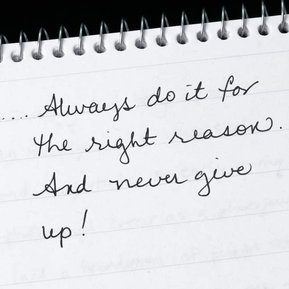 .... Always do it for
the right reason.
And never give
up!